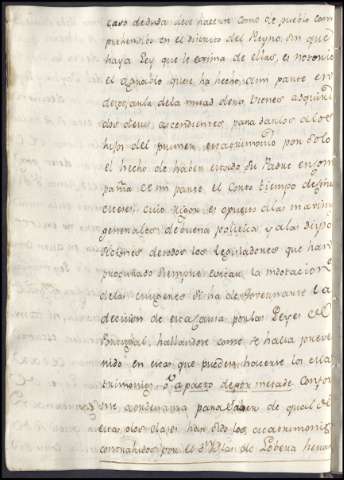 caso de duda deve hacerse como de pueblo com
prehendido en el distrito del Reyno, sin que
haya ley que le exima de ellas, es notorio
el agravio que se ha hecho a mi parte en
despojarla de la mitad de los vienes adquiri
dos de sus ascendientes para darlos a los
hijos del primer matrimonio por solo
el hecho de haber estado su Padre en com
pañia de mi parte el corto tiempo de
cuio rigor es opuesto a las maximas
generales de buena politica y a las dispo
siciones de todos los legisladores que han
procurado siempre evitar la
de las ha de governarse la
decision de esta causa por las Leyes de
Portugal, hallandose como se halla preve
nido en ellas que pueden hacerse los ma
trimonios, o a pacto de por mitade confor
me a ordenanza para saber de qual de
estas dos clases han sido los matrimonios
contrahidos por el Dn Blas de Lobera